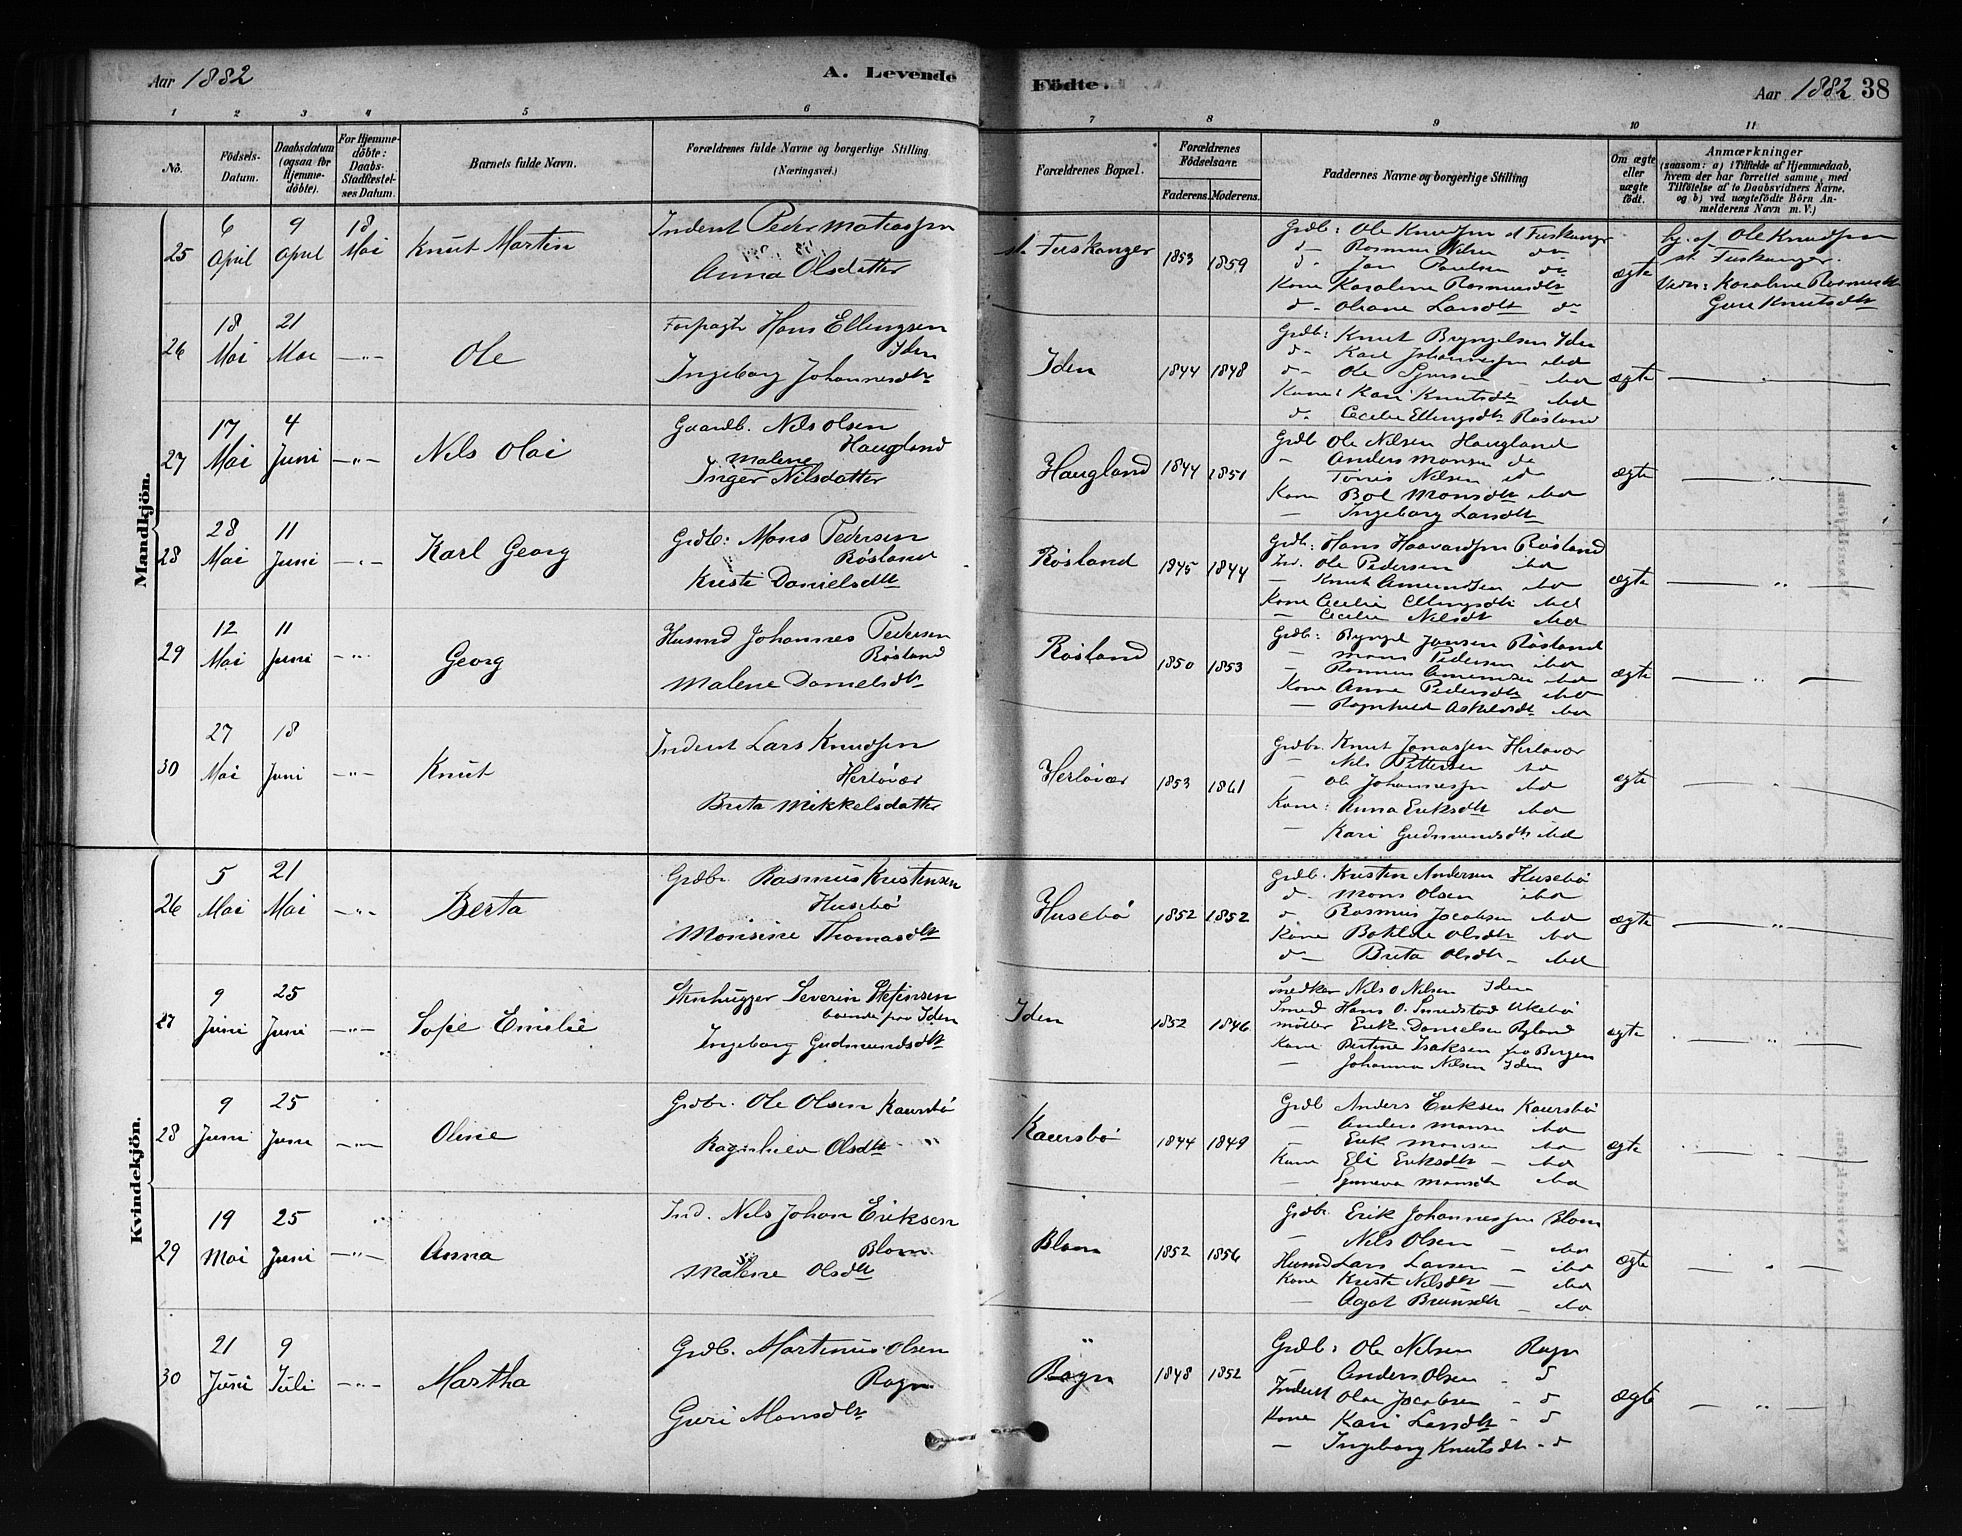 Aar 1882
A. Levende
Födte.
Aar 1882 38
1 2 3 4 5 6 7 8 9 10 11
No.
Födsels-Datum.
Daabsdatum (ogsaa for Hjemme-döbte).
For Hjemme-döbte: Daabs-Stadfæstel-ses Datum.
Barnets fulde Navn.
Forældrenes fulde Navne og borgerlige Stilling (Næringsvei.)
Forældrenes Bopæl.
Forældrenes Födselsaar.
Faderens. Moderens.
Faddernes Navne og borgerlige Stilling
Om ægte eller uægte födt.
Anmærkninger
(saasom: a) i Tilfælde af Hjemmedaab, hvem der har forrettet samme, med Tilföielse af to Daabsvidners Navne, og b) ved uægtefödte Börn An-melderens Navn m. V.)
Mandkjön.
25
6 April
9 April
18 Mai
Knut Martin
Inderst Peder Matiassen
Anna Olsdatter
st. Fuskanger
1853 1859
Grdb: Ole Knudsen st Fuskanger
d- Rasmus Nilsen do
d- Jan Paulsen do
Kone Karoline Rasmusdt
d- Oleane Larsdt do
ægte
hj. af Ole Knudsen
st. Fuskanger.
Vidn: Karoline Rasmusdt
Guri Knutsdt
26
18 Mai
21 Mai
Ole
Forpagtr Hans Ellingsen
Iden
Ingeborg Johannesdtr
Iden
1844 1848
Grdb: Knut Bryngelsen Iden
d- Karl Johannessen ibid
d- Ole ibid
Kone: Kari Knutsdt ibid
d- Cecilie Ellingsdt Røsland
ægte
27
17 Mai
4 Juni
Nils Olai
Gaardb. Nils Olsen
Haugland
Malene
Inger Nilsdatter
Haugland
1844 1851
Grdb Ole Nilsen Haugland
- Anders Monsen do
Tørris Nilsen id
Kone Bol Monsdt ibid
- Ingeborg Larsdt
ægte
28
28 Mai
11 Juni
Karl Georg
Grdb: Mons Pedersen
Røsland
Kristi Danielsdt
Røsland
1845 1844
Grdb: Hans Haavardsen Røsland
Ind. Ole Pedersen ibd
- Knut Amundsen ibd
Kone Cecilie Ellingsdt ibd
- Cecilie Nilsdt ibd
ægte
29
12 Mai
11 Juni
Georg
Husmd Johannes Pedersen
Røsland
Malene Danielsdt
Røsland
1850 1853
Grdb: Bryngel Jansen Røsland
- Mons Pedersen ibd
- Rasmus Amundsen ibd
Kone Anne Pedersdt ibd
- Ragnhild Askildsdt ibd
ægte
30
27 Mai
18 Juni
Knut
Inderst Lars Knudsen
Herløvær
Brita Mikkelsdatter
Herløvær
1853 1861
Grdbr. Knut Jonassen Herløvær
- Nils Pettersen ibd
- Ole Johannessen ibd
Kone: Anna Eriksdt ibd
- Kari Gudmundsdt ibd
ægte
Kvindekjön.
26
5 Mai
21 Mai
Berta
Grdbr. Rasmus Kristensen
Husebø
Monsine Thomasdt
Husebø
1852 1852
Grdb. Kristen Andersen Husebø
d. Mons Olsen ibd
d. Rasmus Jacobsen ibd
Kone Olsdt ibd
d- Brita Olsdt - ibd
ægte
27
9 Juni
25 Juni
Sofie Emilie
Stenhugger Severin Stefensen
boende paa Iden
Ingeborg Gudmundsdt
Iden
1852 1846
Snedker Nils O Nilsen Iden
Smed Hans O. Sundstad Ukebø
Møller Erik Danielsen Ryland
Kone Bertine Isaksen fra Bergen
- Johanna Nilsen Iden
ægte
28
9 Juni
25 Juni
Oline
Grdbr. Ole Olsen Kaursbø
Ragnhild Olsdt
Kaursbø
1844 1849
Grdb Anders Eriksen Kaursbø
- Anders Monsen ibd
- Erik Monsen ibd
Kone Eli Eriksdt - ibd
- Synneva Monsdt ibd
ægte
29
19 Mai
25 Juni
Anna
Ind. Nils Johan Eriksen
Blom
Malene Olsdt
Blom
1852 1856
Grdbr. Erik Johannessen Blom
- Nils Olsen - ibd
Husmd Lars Larsen - ibd
Kone Kristi Nilsdt - ibd
- Agat Brunsdt - ibd
ægte
30
21 Juni
9 Juli
Martha
Grdb. Martinus Olsen
Rogn
Guri Monsdtr
Rogn
1848 1852
Grdb: Ole Nilsen Rogn
Anders Olsen - d
Inderst Olai Jacobsen - d
Kone Kari Larsdt - d
- Ingeborg Knutsdt - d
ægte